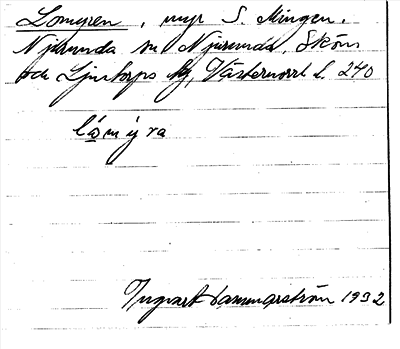 Lomyren, myr S. Mingen.
Njurunda sn Njurunda, Sköns
och Ljustorps tg, Västernorrl l. 240
lò̱mýra
Ingvart Hammarström 1932